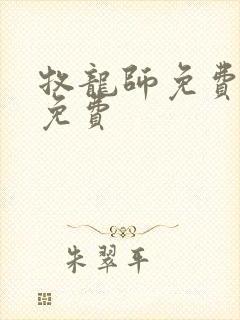 牧龍師免費
免費
朱翠平